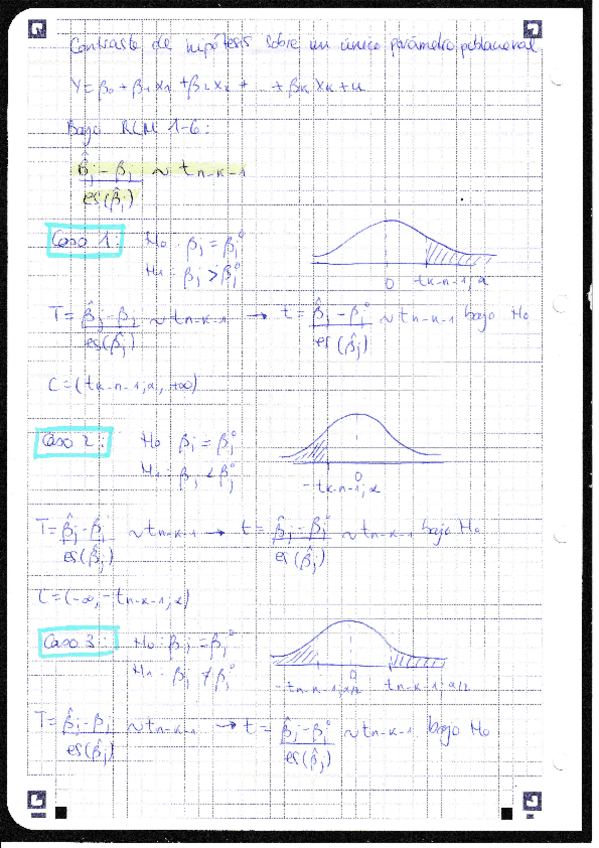 Contraste de hipótesis sobre un único parámetro poblacional
Y = β₀ + β₁x₁ + β₂x₂ + ... + βₖxₖ + u
Bajo RLM 1-6:
(β̂ⱼ - βⱼ) / es(β̂ⱼ) ~ tₙ₋ₖ₋₁
Caso 1: H₀: βⱼ = βⱼ⁰
H₁: βⱼ > βⱼ⁰
0 tₖ₋ₙ₋₁;α
T = (β̂ⱼ - βⱼ) / es(β̂ⱼ) ~ tₙ₋ₖ₋₁ → t = (β̂ⱼ - βⱼ⁰) / es(β̂ⱼ) ~ tₙ₋ₖ₋₁ bajo H₀
C = (tₖ₋ₙ₋₁;α, +∞)
Caso 2: H₀: βⱼ = βⱼ⁰
H₁: βⱼ < βⱼ⁰
0
-tₖ₋ₙ₋₁;α
T = (β̂ⱼ - βⱼ) / es(β̂ⱼ) ~ tₙ₋ₖ₋₁ → t = (β̂ⱼ - βⱼ⁰) / es(β̂ⱼ) ~ tₙ₋ₖ₋₁ bajo H₀
C = (-∞, -tₙ₋ₖ₋₁;α)
Caso 3: H₀: βⱼ = βⱼ⁰
H₁: βⱼ ≠ βⱼ⁰
-tₙ₋ₖ₋₁;α/2 0 tₙ₋ₖ₋₁;α/2
T = (β̂ⱼ - βⱼ) / es(β̂ⱼ) ~ tₙ₋ₖ₋₁ → t = (β̂ⱼ - βⱼ⁰) / es(β̂ⱼ) ~ tₙ₋ₖ₋₁ bajo H₀